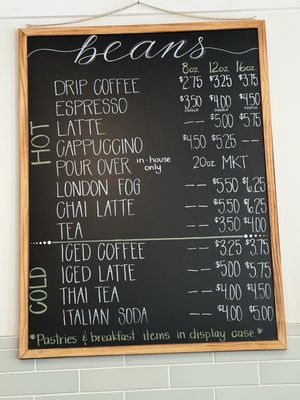 beans
8oz 12oz 16oz
DRIP COFFEE $2.75 $3.25 $3.75
ESPRESSO $3.50 $4.00 $4.50
LATTE -- $5.00 $5.75
CAPPUCCINO $4.50 $5.25 --
POUR OVER in-house only 20oz MKT
LONDON FOG -- $5.50 $6.25
CHAI LATTE -- $5.50 $6.25
TEA -- $3.50 $4.00
HOT
ICED COFFEE -- $3.25 $3.75
ICED LATTE -- $5.00 $5.75
THAI TEA -- $4.00 $4.50
ITALIAN SODA -- $4.00 $5.00
COLD
*Pastries & breakfast items in display case*